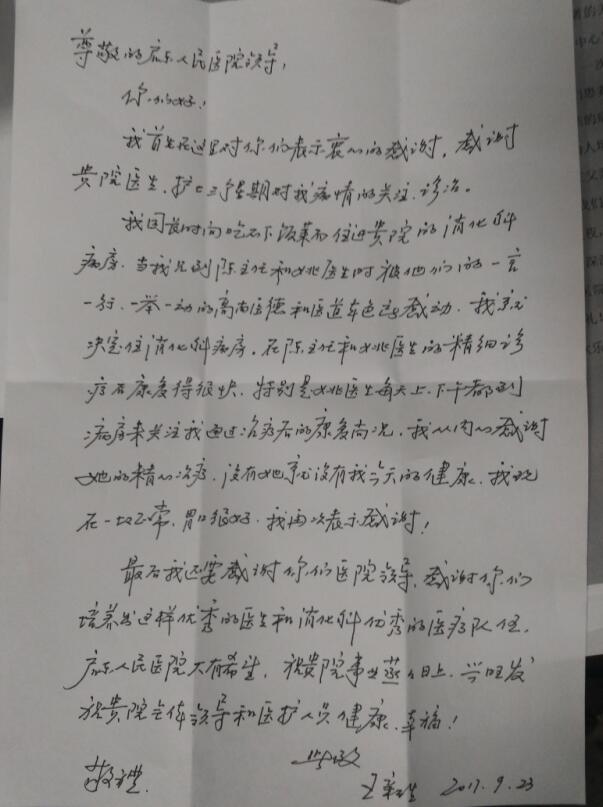 尊敬的启东人民医院领导，
你们好！
我首先在这里对你们表示衷心的感谢，感谢
贵院医生、护士三个星期对我病情的关注、诊治。
我因长时间吃不下饭菜而住进贵院的消化科
病房，当我见到陈主任和姚医生时被他们的一言
一行、一举一动的高尚医德和医道本色所感动，我就
决定住消化科病房，在陈主任和姚医生的精细诊
疗后康复得很快，特别是姚医生每天上、下午都到
病房来关注我通过治疗后的康复尚况，我从内心感谢
她的精心治疗，没有她就没有我今天的健康，我现
在一切正常，胃口很好，我再次表示感谢！
最后我还要感谢你们医院领导，感谢你们
培养出这样优秀的医生和消化科优秀的医疗队伍，
启东人民医院大有希望，祝贵院事业蒸蒸日上，兴旺发
祝贵院全体领导和医护人员健康、幸福！
此致
敬礼 2017.9.23